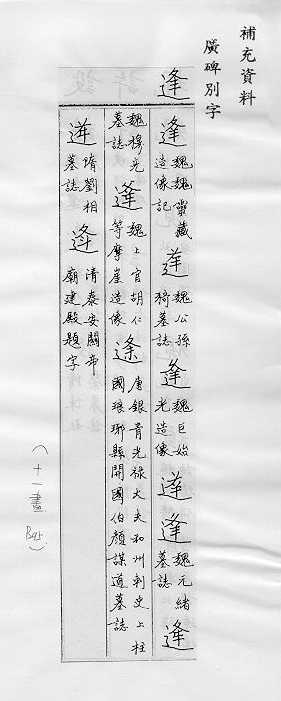 補充資料
廣碑別字
逢
逢 魏魏靈藏造像記 逢 魏公孫猗墓誌 逢 魏巨始光造像 逢 逢 魏元緒墓誌 逢
魏穆亮墓誌 逢 魏上官胡仁等摩崖造像 逢 唐銀青光祿大夫和州刺史上柱國琅琊縣開國伯顏謀道墓誌
逆 隋劉相墓誌 逢 清泰安關帝廟建殿題字
(十一畫 B45)